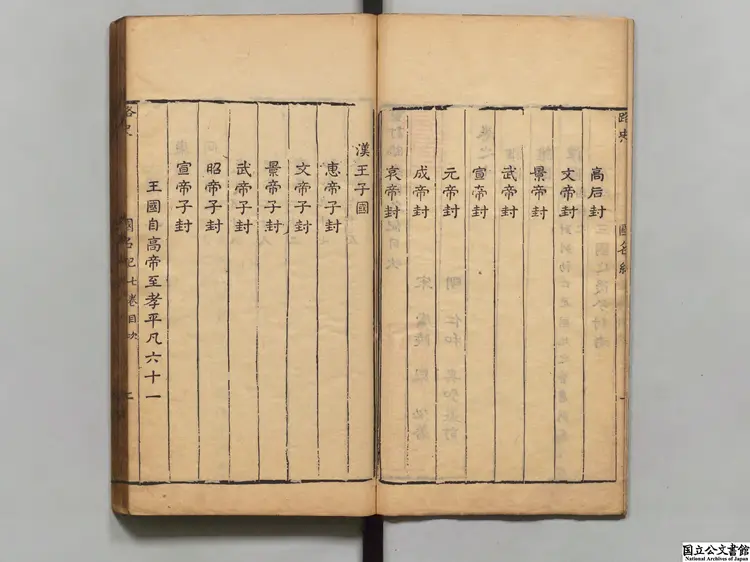 高后封
文帝封
景帝封
武帝封
宣帝封
元帝封
成帝封
哀帝封
漢王子國
惠帝子封
文帝子封
景帝子封
武帝子封
昭帝子封
宣帝子封
王國自高帝至孝平凡六十一
路史
國名紀
路史
國名紀七卷目次
二
国立公文書館
National Archives of Japan